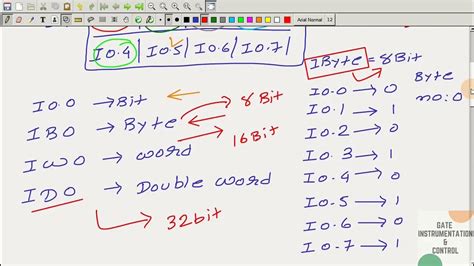 Arial Normal 12
I0.4 | I0.5 | I0.6 | I0.7 |
I0.0 → Bit
IB0 → Byte
8 Bit
IW0 → word
16 Bit
ID0 → Double word
32 bit
1 Byte = 8 Bit
Byte
no: 0
I0.0 → 0
I0.1 → 1
I0.2 → 0
I0.3 → 1
I0.4 → 0
I0.5 → 1
I0.6 → 0
I0.7 → 1
GATE
INSTRUMENTATION
&
CONTROL